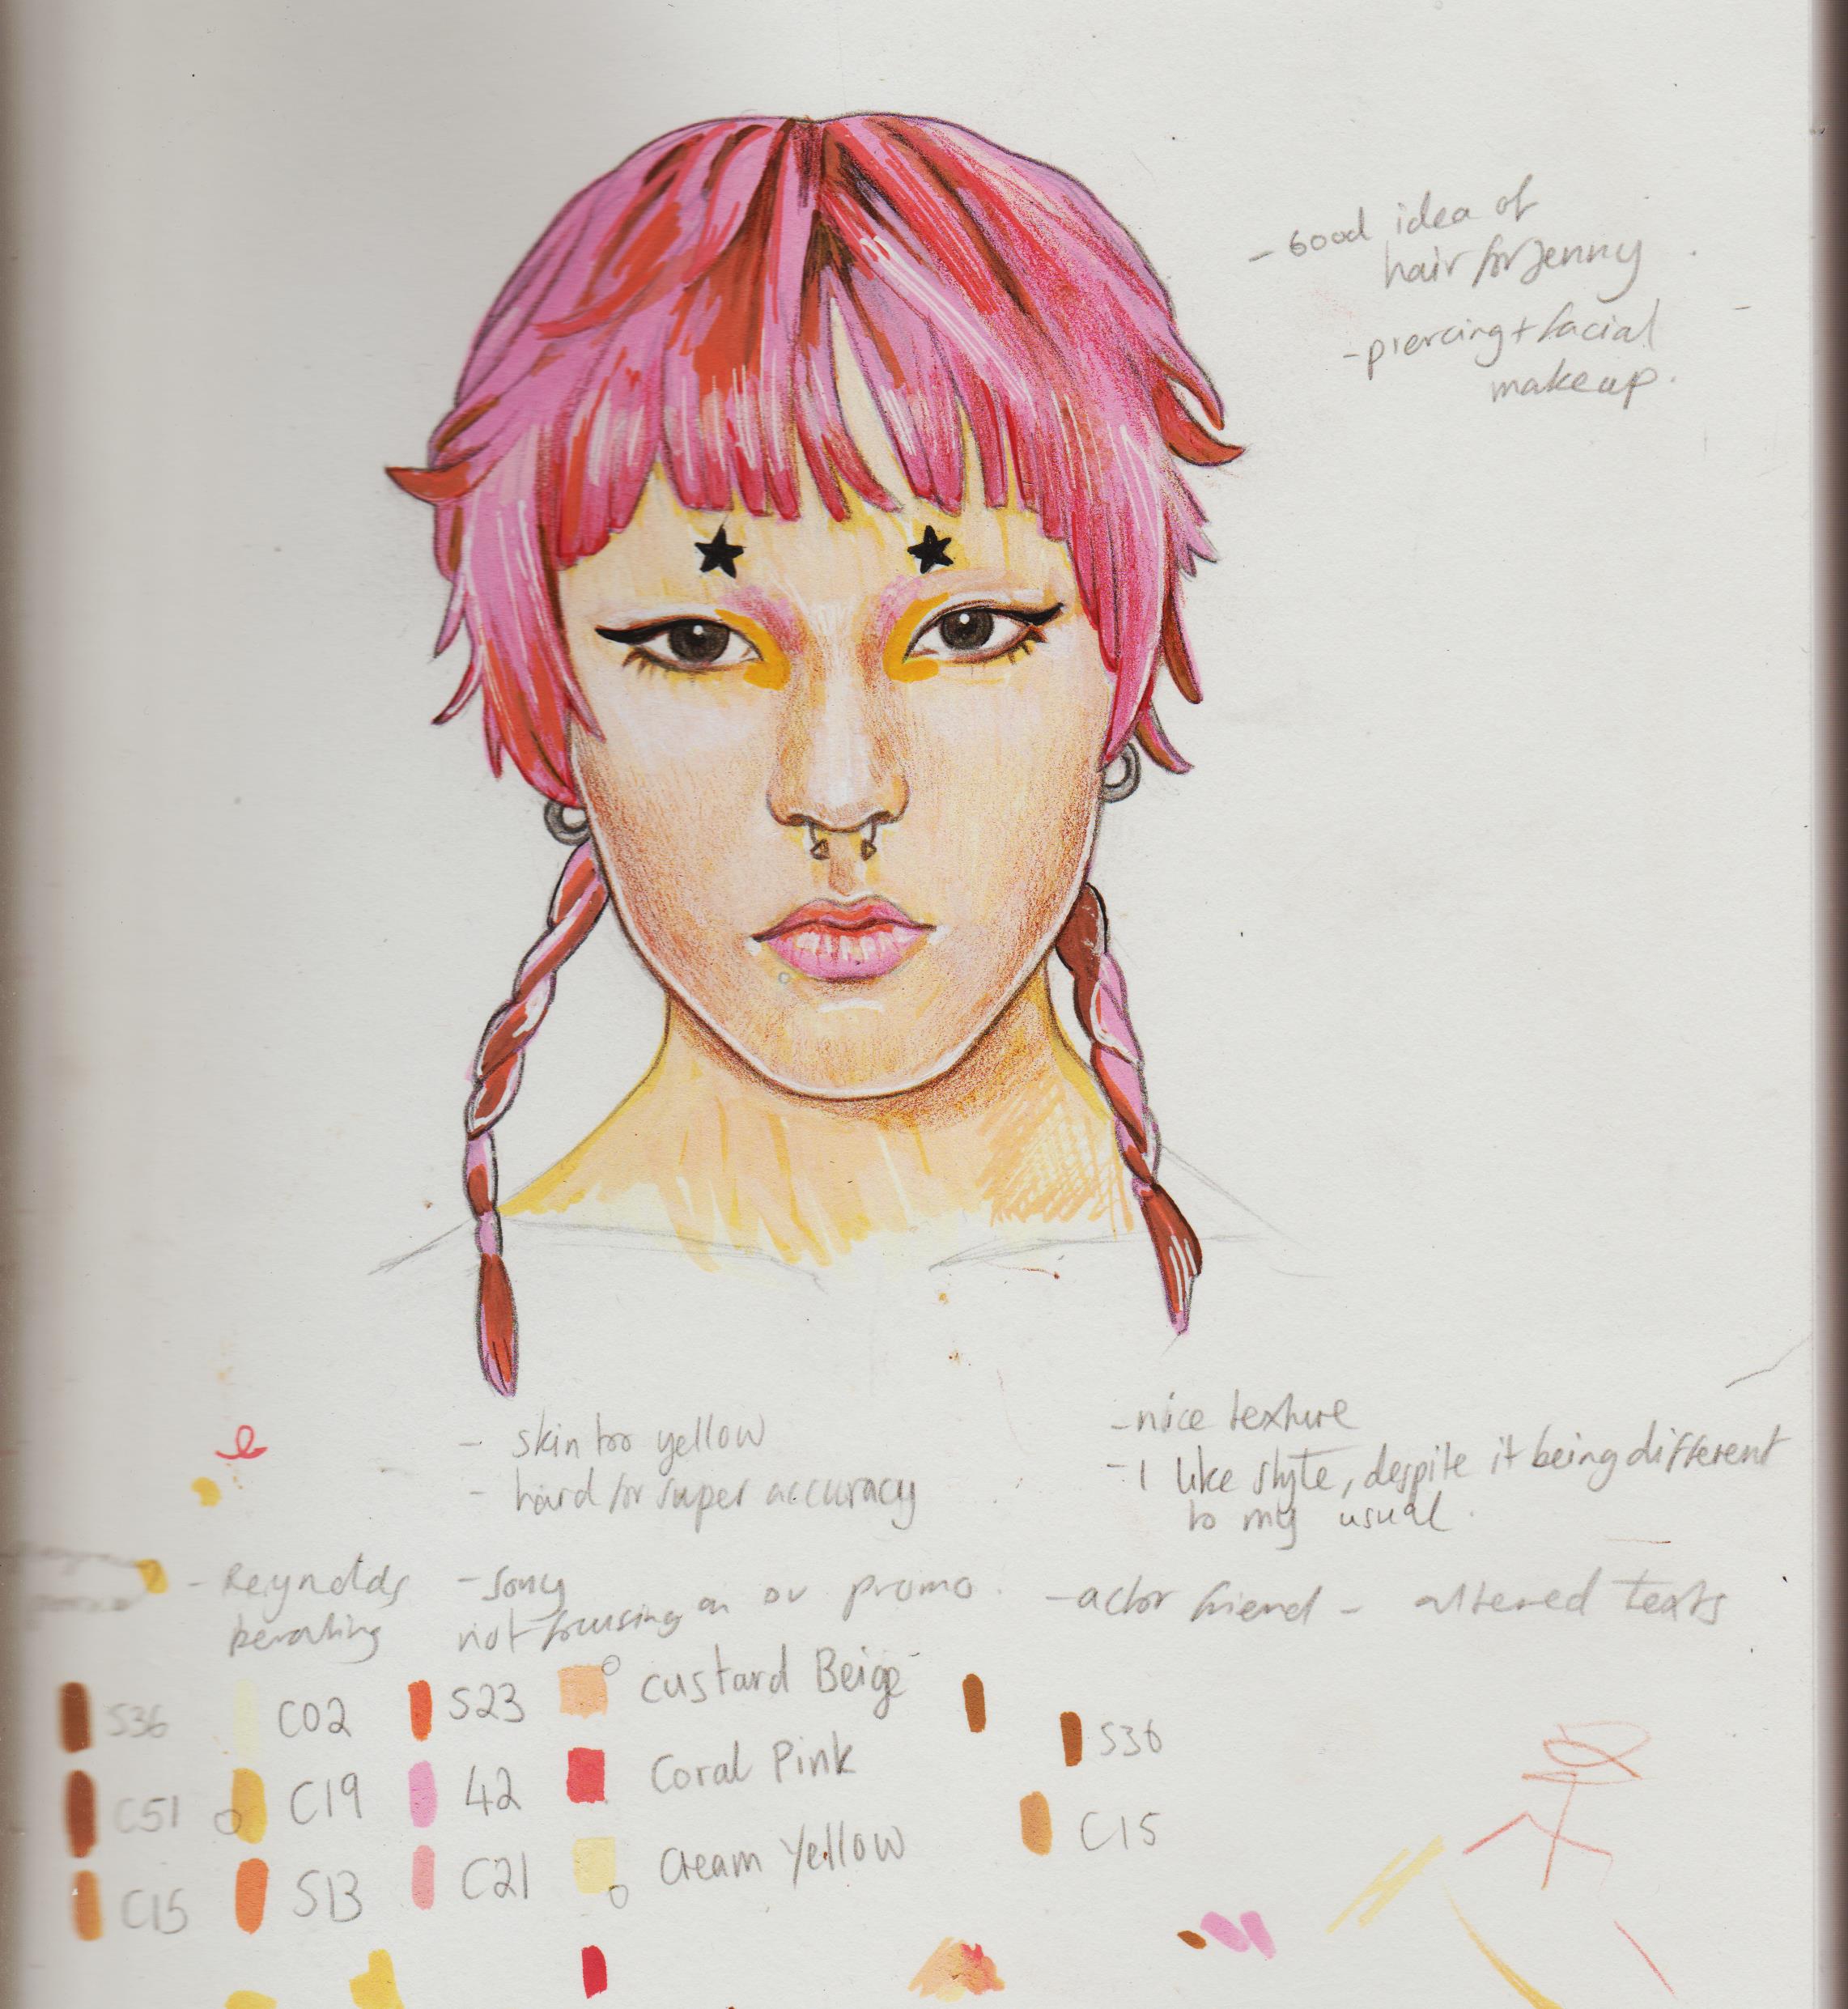 - Good idea of
hair for Jenny
- piercing + facial
makeup.
- skin too yellow
- hard for super accuracy
- nice texture
- I like style, despite it being different
to my usual.
- Reynolds
- Sony
not focusing on ov promo.
- actor friend - altered texts
S36
C02
S23
Custard Beige
S36
C51
C19
42
Coral Pink
C15
C15
S13
C21
Cream Yellow